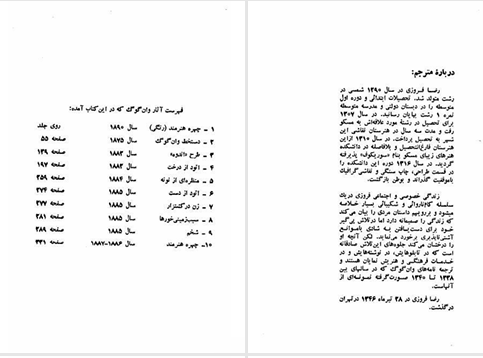 دربارهٔ مترجم:
رضا فروزی در سال ۱۲۹۰ شمسی در
رشت متولد شد. تحصیلات ابتدائی و دوره اول
متوسطه را در دبستان دولتی و مدرسه متوسطه
نمره ۱ رشت بپایان رسانید. در سال ۱۳۰۷
برای تحصیل در رشتهٔ مورد علاقه‌اش به مسکو
رفت و مدت سه سال در هنرستان نقاشی این
شهر تحصیل پرداخت. در سال ۱۳۱۰ از این
هنرستان فارغ‌التحصیل و بلافاصله در دانشکده
هنرهای زیبای مسکو بنام «سوریکوف» پذیرفته
شد. در سال ۱۳۱۶ دوره این دانشکده را
در قسمت طراحی، چاپ سنگی و نقاشی‌گرافیک
باموفقیت گذراند و بوطن بازگشت.
زندگی خصوصی و اجتماعی فروزی در یک
سلسله کم‌توانی و شکیبائی بسیار خلاصه
میشود و برویهم داستان مردی را بیان می‌کند
که زندگی را صمیمانه دارد اما در تلاش پی‌گیر
خود برای دست‌یافتن به شادی باموانع
برخورد می‌نماید. لکن آنچه او
را درخشان می‌کند جلوه‌های این تلاش صادقانه
است که در تابلوهایش، در نوشته‌هایش و در
خدمات فرهنگی و هنریش نمایان هستند و
ترجمه نامه‌های وان‌گوگ که در سالهای بین
۱۳۳۸ تا ۱۳۴۰ صورت‌گرفته نمونه‌ای از
آنهاست.
رضا فروزی در ۲۸ تیرماه ۱۳۴۶ در تهران
درگذشت.
فهرست آثار وان‌گوگ که در این کتاب آمده:
۱ ـ چهره هنرمند (رنگی) سال ۱۸۹۰ روی جلد
۲ ـ دستخط وان‌گوگ سال ۱۸۷۵ صفحه ۵۵
۳ ـ طرح «اندوه» سال ۱۸۸۲ صفحه ۱۳۹
۴ ـ اتود از درخت سال ۱۸۸۲ صفحه ۱۹۷
۵ ـ منظره‌ای از نونه سال ۱۸۸۴ صفحه ۳۵۹
۶ ـ اتود از دست سال ۱۸۸۵ صفحه ۳۷۴
۷ ـ زن در گشتزار سال ۱۸۸۵ صفحه ۳۷۷
۸ ـ سیب‌زمینی‌خورها سال ۱۸۸۵ صفحه ۳۸۱
۹ ـ شخم سال ۱۸۸۵ صفحه ۳۸۹
۱۰ـ چهره هنرمند سال ۱۸۸۶-۱۸۸۷ صفحه ۴۳۱